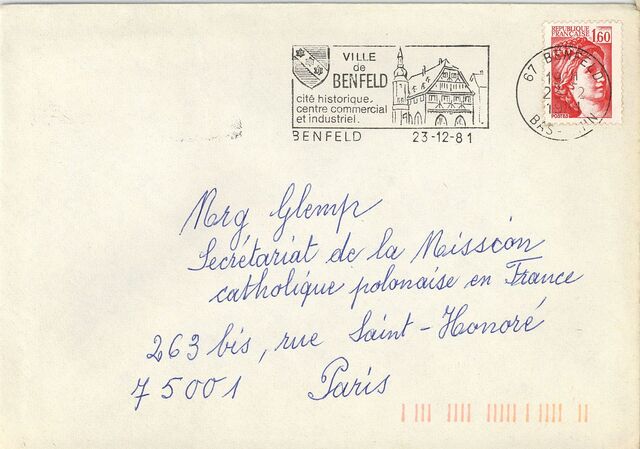 VILLE
de
BENFELD
cité historique.
centre commercial
et industriel.
BENFELD 23-12-81
REPUBLIQUE
FRANÇAISE
1,60
POSTES
67 BENFELD
Mrg Glemp
Secrétariat de la Mission
catholique polonaise en France
263 bis, rue Saint-Honoré
75001 Paris